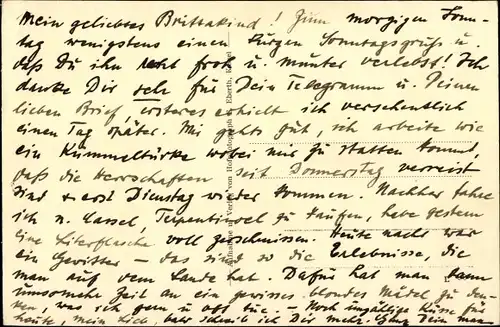 Mein geliebtes Brittakind! Zum morgigen Sonn-
tag wenigstens einen kurzen Sonntagsgruß u.
daß Du ihn recht froh u. munter verlebst! Ich
danke Dir sehr für Dein Telegramm u. Deinen
lieben Brief, ersteres erhielt ich versehentlich
einen Tag später. Mir gehts gut, ich arbeite wie
ein Kümmeltürke wobei mir zu statten kommt,
daß die Herrschaften seit Donnerstag verreist
sind & erst Dienstag wieder kommen. Nachher fahre
ich n. Cassel, Terpentinoel zu kaufen, habe gestern
eine Literflasche voll zerschmissen. Heute nacht war
ein Gewitter – das sind so die Erlebnisse, die
man auf dem Lande hat. Dafür hat man dann
umsomehr Zeit an ein gewisses blondes Mädel zu den-
ken, was ich gern u. oft tue. – Noch unzählige Küsse für
heute, mein Lieb, bald schreib ich Dir mehr. Dein
Aufnahme u. Verlag von Hofphotograph Eberth, Kassel